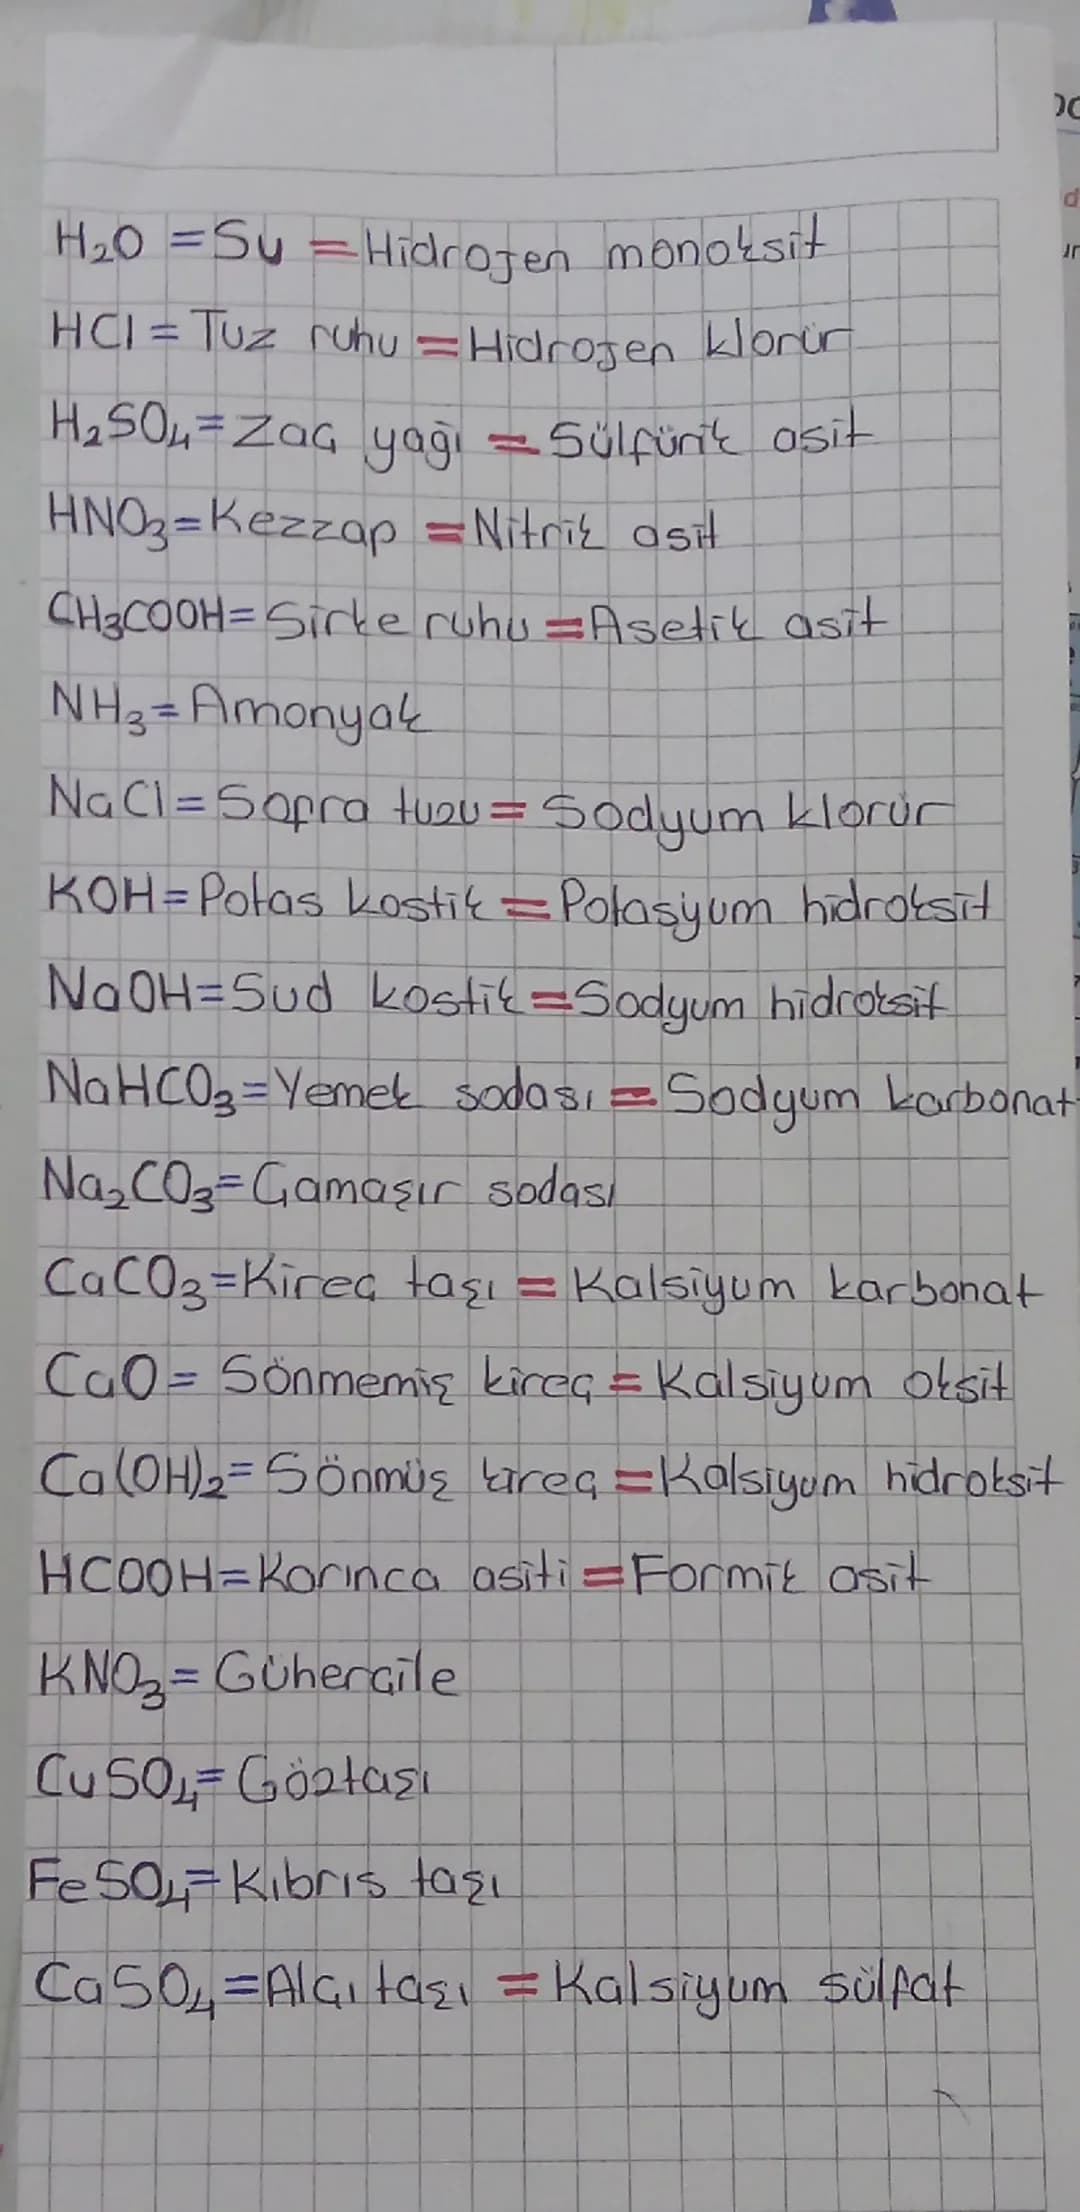 H₂O = Su = Hidrojen monoksit
HCl = Tuz ruhu = Hidrojen klorür
H₂SO₄ = Zaç yağı = Sülfürik asit
HNO₃ = Kezzap = Nitrik asit
CH₃COOH = Sirke ruhu = Asetik asit
NH₃ = Amonyak
NaCl = Sofra tuzu = Sodyum klorür
KOH = Potas kostik = Potasyum hidroksit
NaOH = Sud kostik = Sodyum hidroksit
NaHCO₃ = Yemek sodası = Sodyum karbonat
Na₂CO₃ = Çamaşır sodası
CaCO₃ = Kireç taşı = Kalsiyum karbonat
CaO = Sönmemiş kireç = Kalsiyum oksit
Ca(OH)₂ = Sönmüş kireç = Kalsiyum hidroksit
HCOOH = Karınca asiti = Formik asit
KNO₃ = Güherçile
CuSO₄ = Göztaşı
FeSO₄ = Kıbrıs taşı
CaSO₄ = Alçı taşı = Kalsiyum sülfat